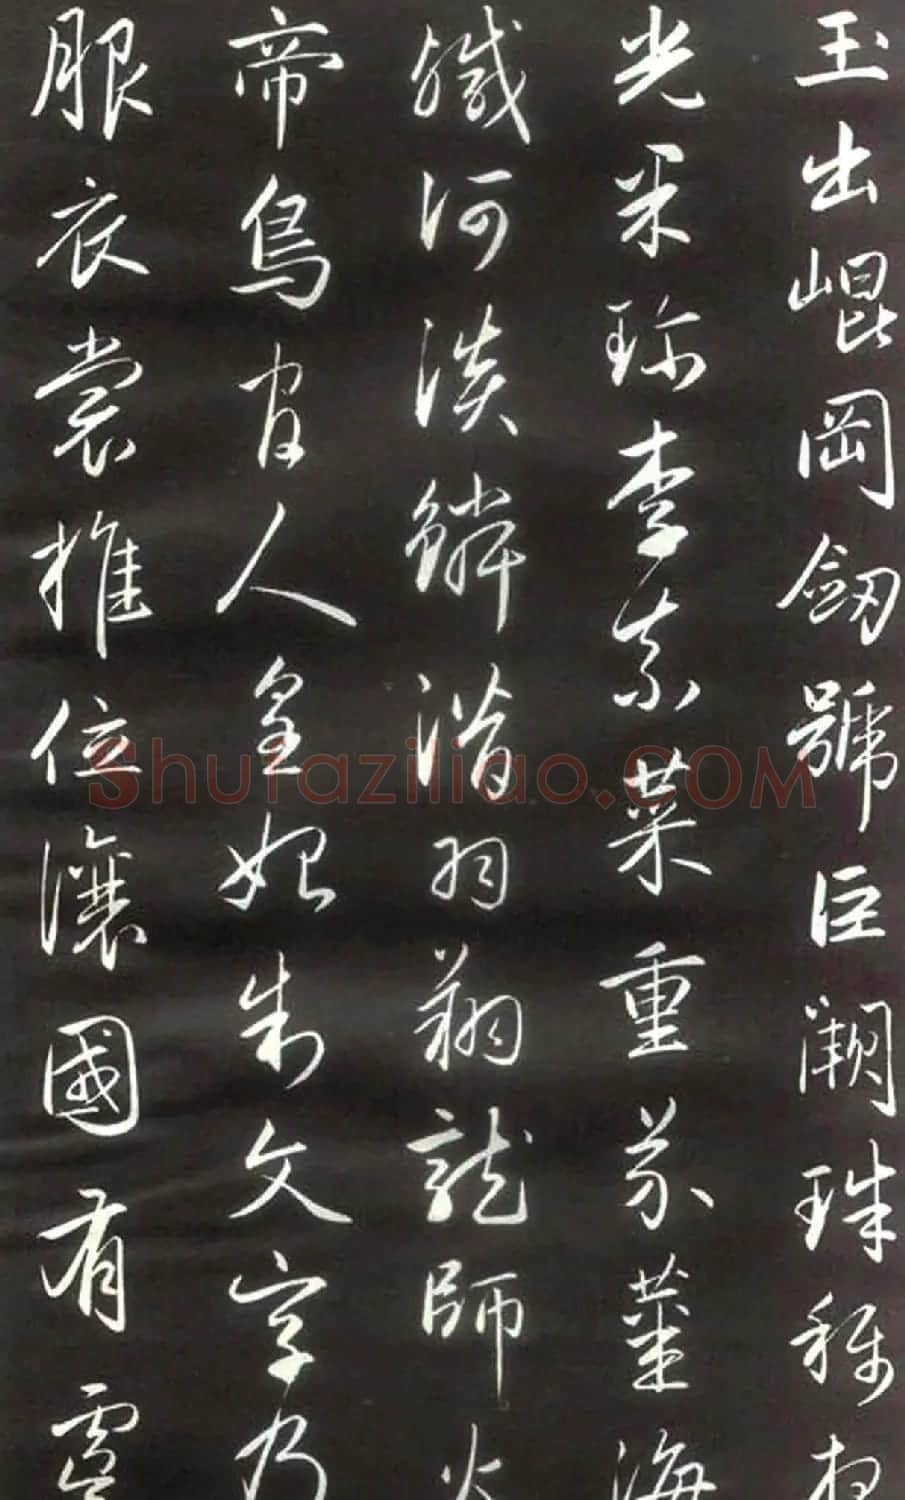 玉出崐岡劒號巨闕珠称
光果珍李柰菜重芥薑海
鹹河淡鱗潛羽翔龍師火
帝鳥官人皇始制文字乃
服衣裳推位讓國有虞
Shufaziliao.COM